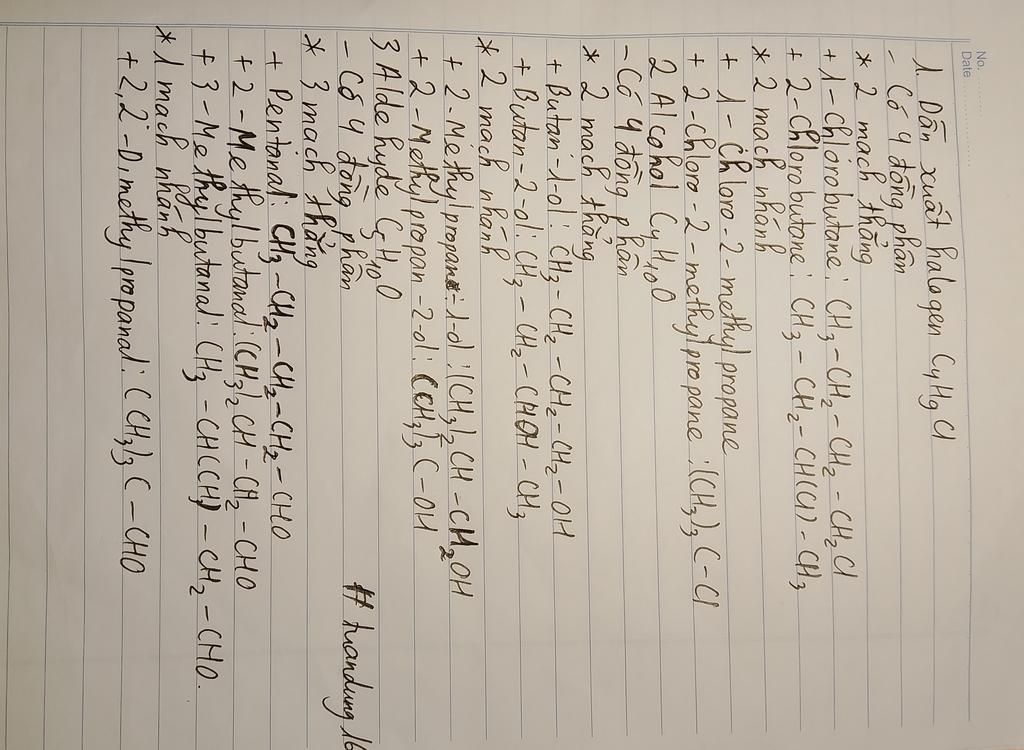 No.
Date
1. Dẫn xuất halogen C4H9Cl
- Có 4 đồng phân
* 2 mạch thẳng
+ 1-Chlorobutane: CH3-CH2-CH2-CH2Cl
+ 2-Chlorobutane: CH3-CH2-CH(Cl)-CH3
* 2 mạch nhánh
+ 1-Chloro-2-methylpropane
+ 2-Chloro-2-methylpropane: (CH3)3C-Cl
2 Alcohol C4H10O
- Có 4 đồng phân
* 2 mạch thẳng
+ Butan-1-ol: CH3-CH2-CH2-CH2-OH
+ Butan-2-ol: CH3-CH2-CHOH-CH3
* 2 mạch nhánh
+ 2-Methylpropan-1-ol: (CH3)2CH-CH2OH
+ 2-Methylpropan-2-ol: (CH3)3C-OH
3 Aldehyde C5H10O
- Có 4 đồng phân
* 3 mạch thẳng
+ Pentanal: CH3-CH2-CH2-CH2-CHO
+ 2-Methylbutanal: (CH3)2CH-CH2-CHO
+ 3-Methylbutanal: CH3-CH(CH)-CH2-CHO.
* 1 mạch nhánh
+ 2,2-Dimethylpropanal: (CH3)3C-CHO